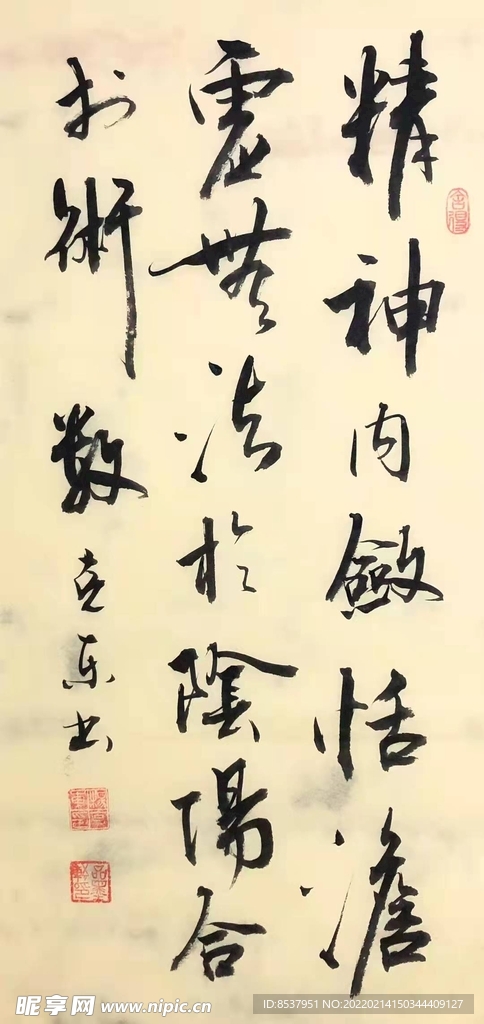 精神内斂恬澹
虛無法於陰陽合
於術數
克東书
舍得
昵享网 www.nipic.cn
ID:8537951 NO:20220214150344409127